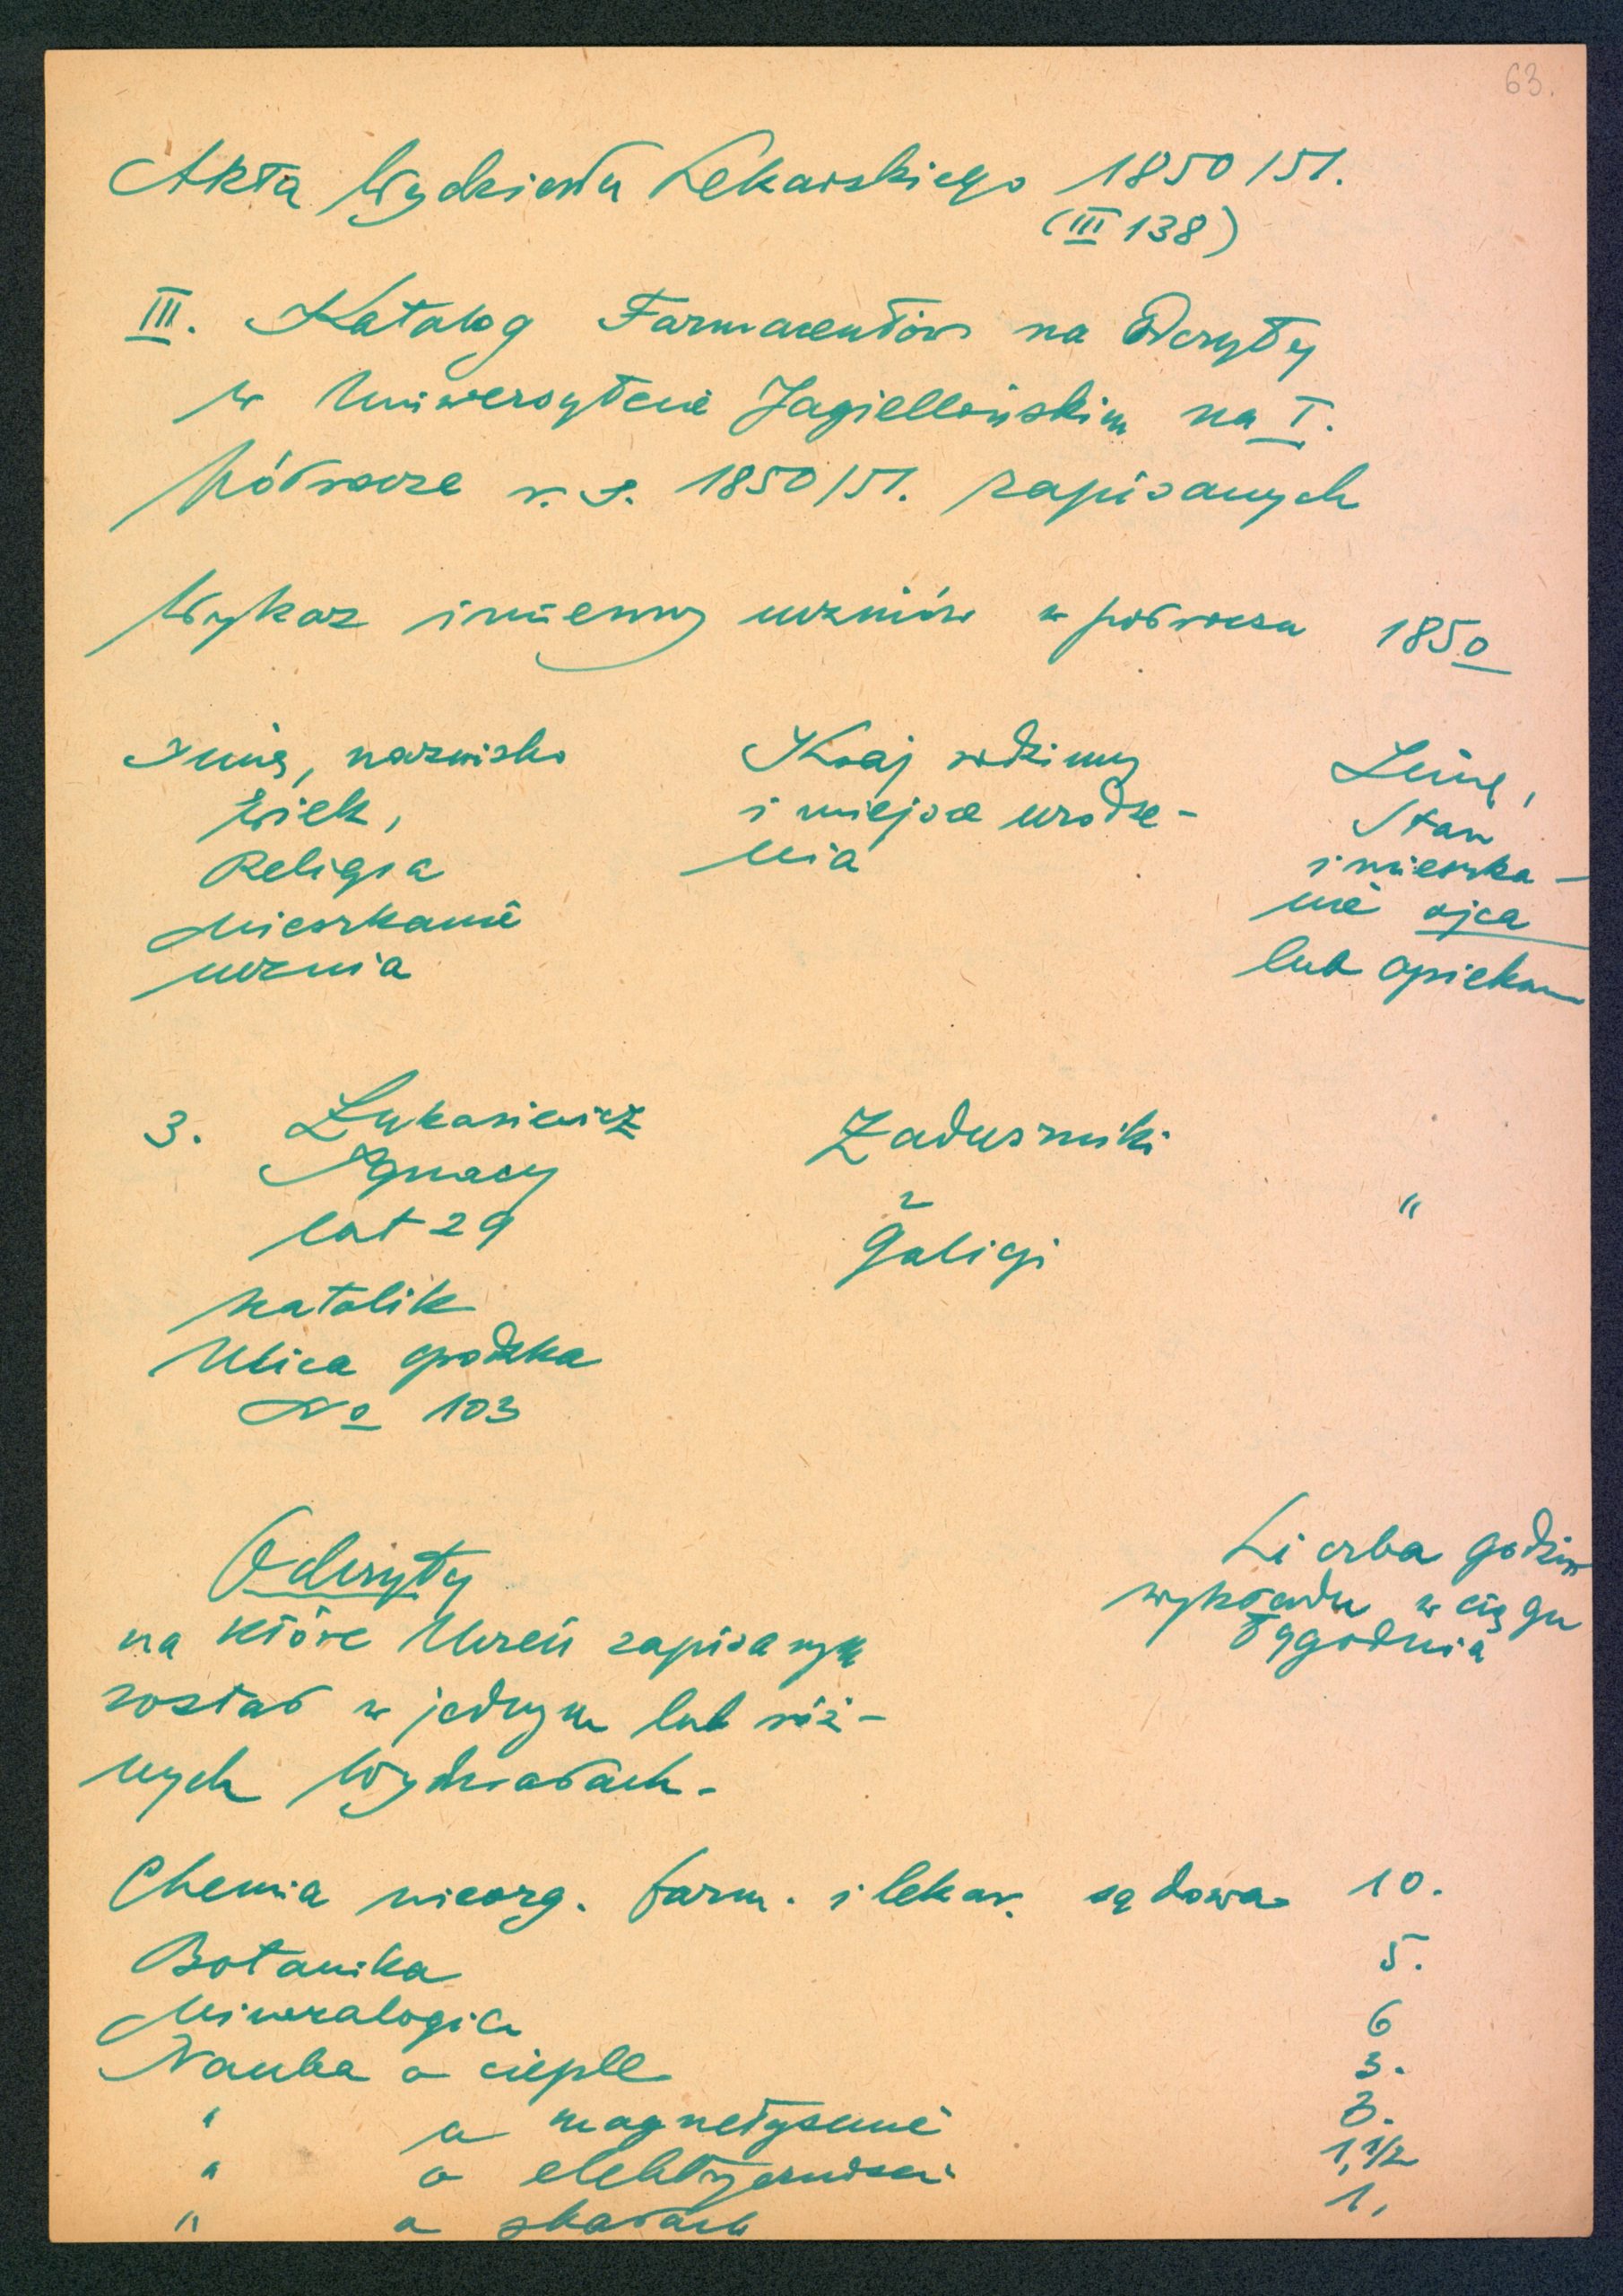 63.
Akta Wydziału Lekarskiego 1850/51.
(III 138)
III. Katalog Farmaceutów na Odczyty
w Uniwersytecie Jagiellońskim na I.
półrocze r. s. 1850/51. zapisanych
Wykaz imienny uczniów w półroczu 1850
Imię, nazwisko
wiek,
Religia
Mieszkanie
ucznia
Kraj rodzimy
i miejsce urodze-
nia
Imię,
Stan
i mieszka-
nie ojca
lub opiekuna
3. Łukasiewicz
Ignacy
lat 29
katolik
Ulica grodzka
No 103
Zaduszniki
z
Galicji
"
Odczyty
na które Uczeń zapisanym
został w jednym lub róż-
nych Wydziałach.
Liczba godzin
wykładu w ciągu
tygodnia
Chemia nieorg. farm. i lekar. sądowa 10.
Botanika 5.
Mineralogia 6
Nauka o cieple 3.
" o magnetyzmie 3.
" o elektryczności 1, 1/2
" o skałach 1,